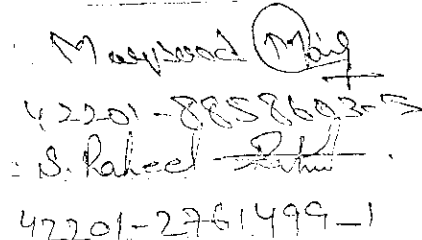 : Maqsood Baig
42201-8858603-5
: S. Raheel
42201-2761499-1